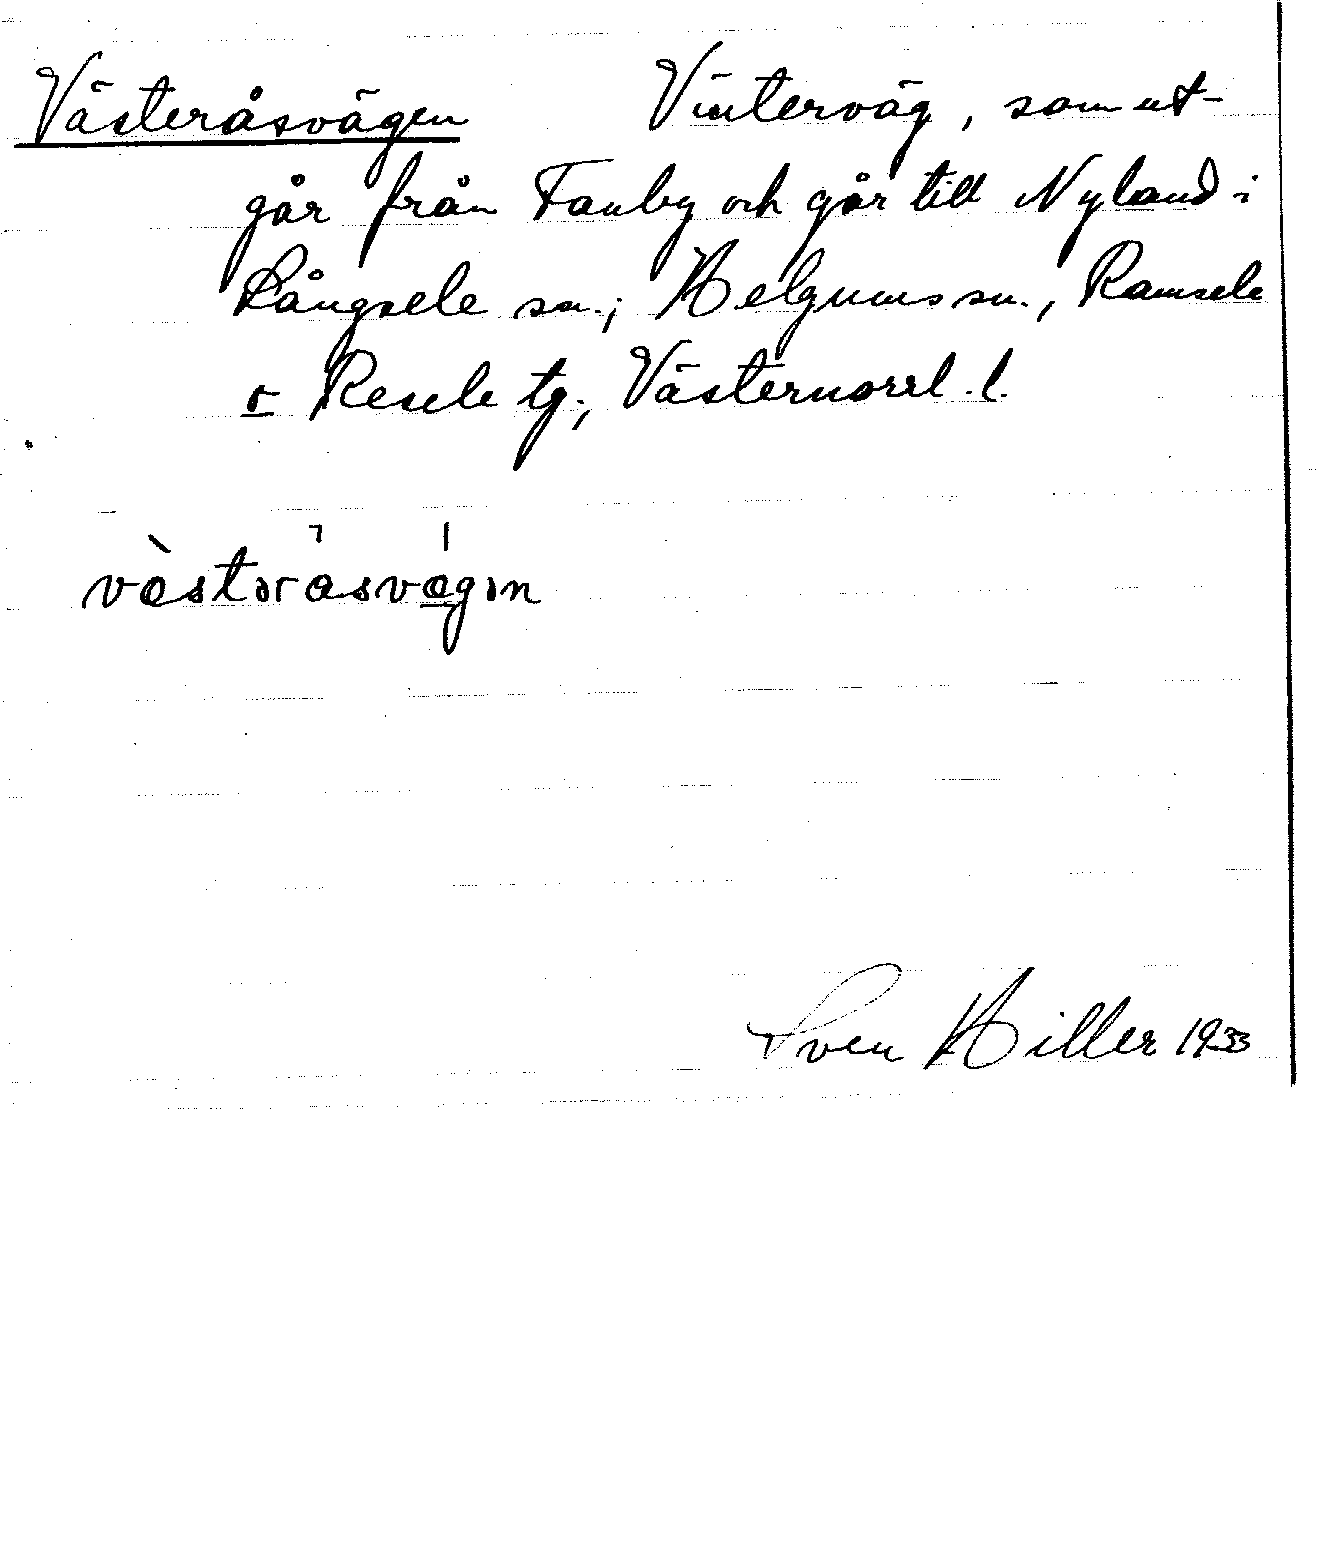 Västeråsvägen Vinterväg, som ut-
går från Fanby och går till Nyland i
Långsele sn.; Helgums sn., Ramsele
o Resele tg., Västernorrl. l.
västəråsvägən
Sven Hiller 1933